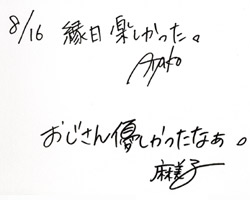 8/16 縁日楽しかった。
AYAKO
おじさん優しかったなぁ。
麻美子